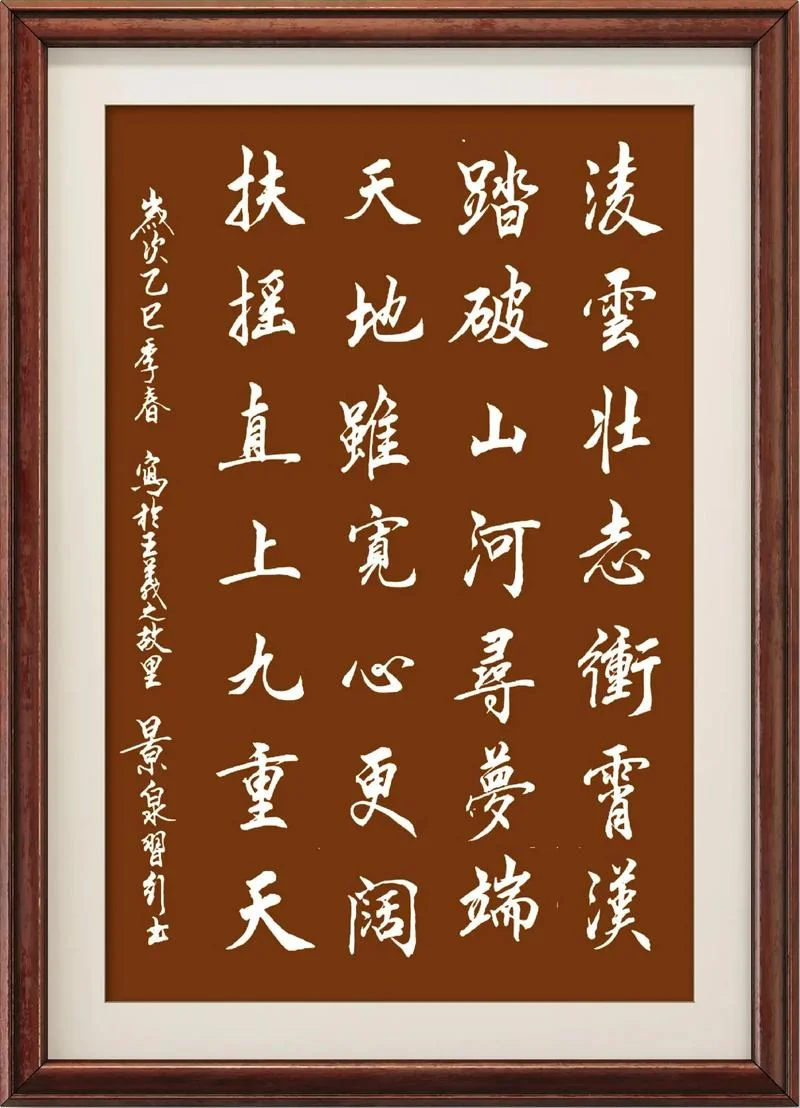 淩雲壯志衝霄漢
踏破山河尋夢端
天地雖寬心更阔
扶摇直上九重天
歲次乙巳季春 寫於王羲之故里 景泉習創書